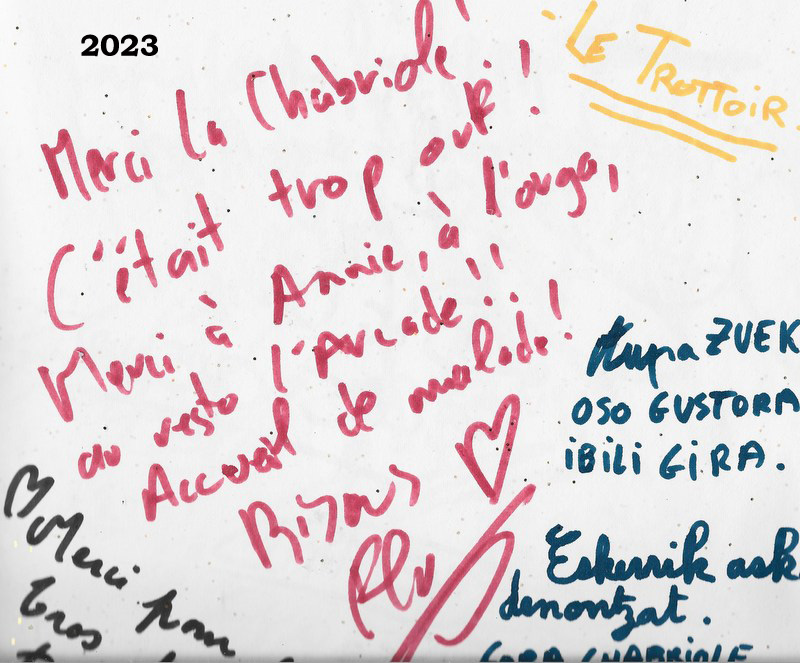 2023
- LE TROTTOIR.
Merci la Chabriole !
C'était trop ouf !
Merci à Annie, à l'orga,
au resto l'Arcade !!
Accueil de malade !
Bisous
Kupa ZUEK
OSO GUSTORA
iBiLi GiRA.
Eskerrik ask
denontzat.
GORA CHABRIOLE
Merci pour